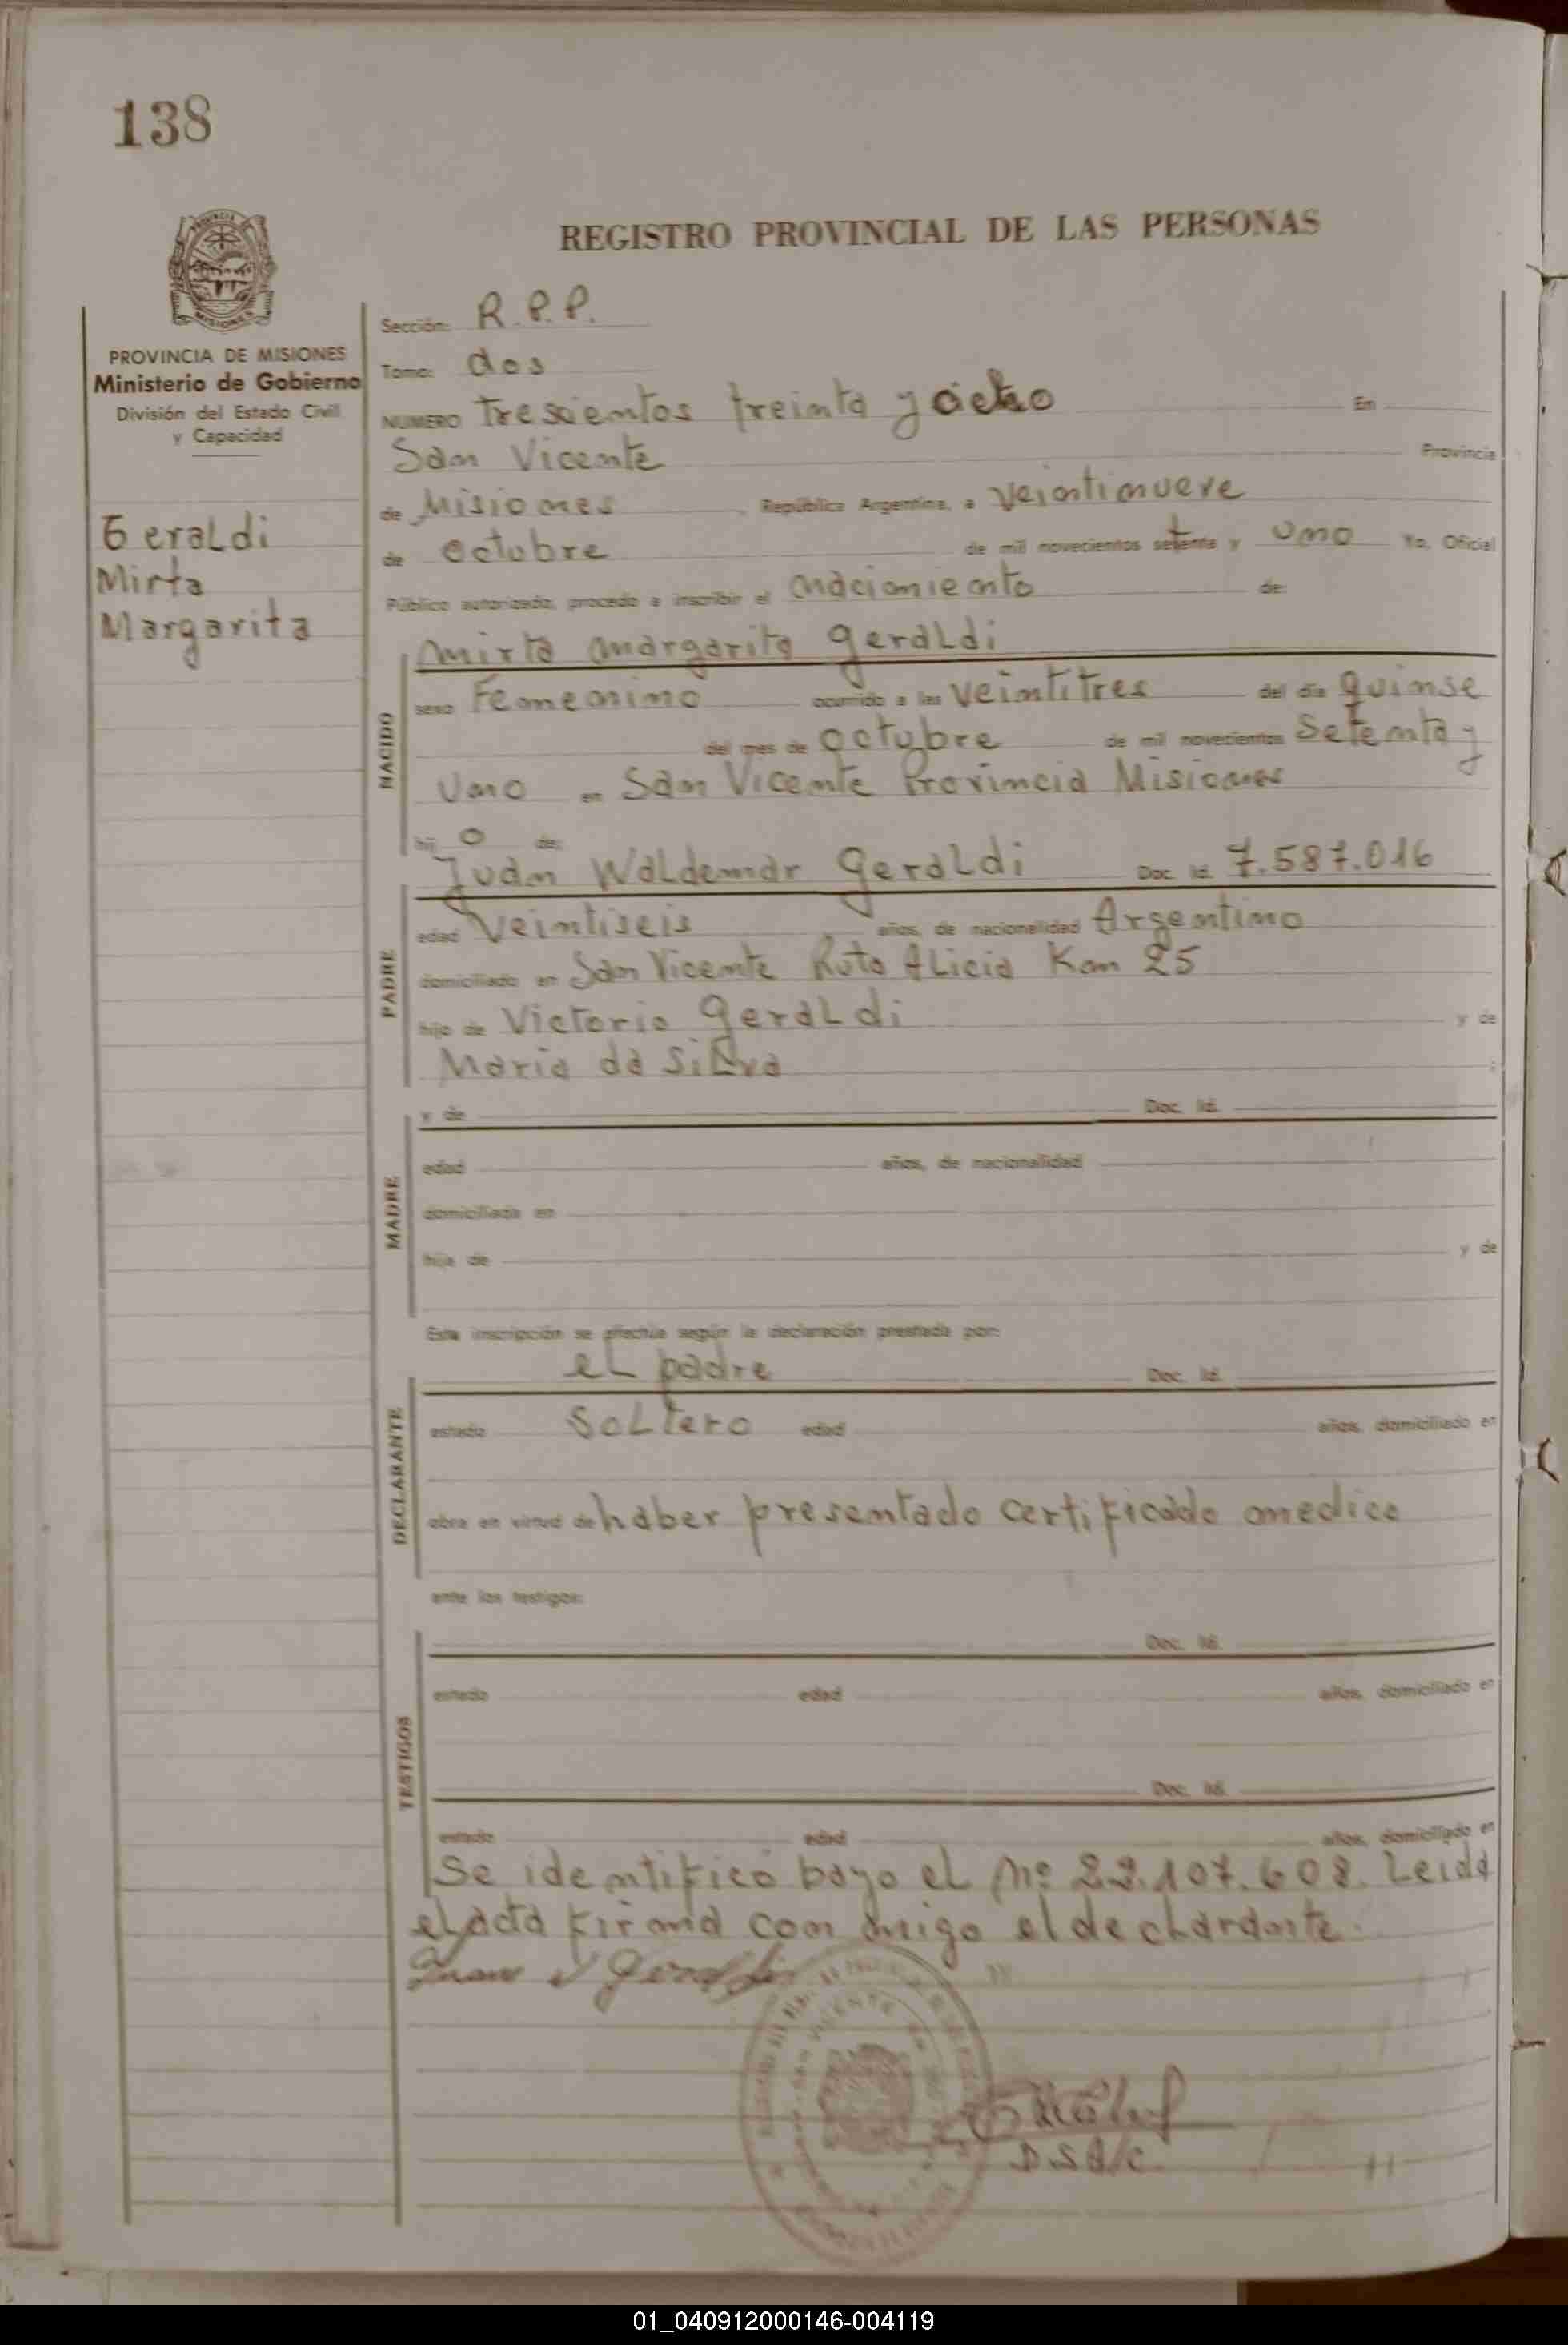 138
REGISTRO PROVINCIAL DE LAS PERSONAS
PROVINCIA DE MISIONES
Ministerio de Gobierno
División del Estado Civil
y Capacidad
Geraldi
Mirta
Margarita
Sección: R.P.P.
Tomo: dos
NUMERO Trescientos treinta y ocho En
San Vicente Provincia
de Misiones, República Argentina, a Veintinueve
de Octubre de mil novecientos setenta y uno Yo, Oficial
Público autorizado, procedo a inscribir el nacimiento de:
NACIDO
Mirta Margarita Geraldi
sexo Femenino ocurrido a las Veintitres del día quinse
del mes de Octubre de mil novecientos Setenta y
Uno en San Vicente Provincia Misiones
hij o de:
PADRE
Juan Waldemar Geraldi Doc. Id. 7.587.016
edad Veintiseis años, de nacionalidad Argentino
domiciliado en San Vicente Ruta Alicia Km 25
hijo de Victorio Geraldi y de
Maria da Silva ;
MADRE
y de Doc. Id.
edad años, de nacionalidad
domiciliada en
hija de y de
Esta inscripción se efectúa según la declaración prestada por:
DECLARANTE
el padre Doc. Id.
estado Soltero edad años, domiciliado en
obra en virtud de haber presentado certificado medico
ante los testigos:
TESTIGOS
Doc. Id.
estado edad años, domiciliado en
Doc. Id.
estado edad años, domiciliado en
Se identificó bayo el Nº 22.107.608. Leida
el acta firma con migo el dechardante.
Juan Geraldi
01_040912000146-004119